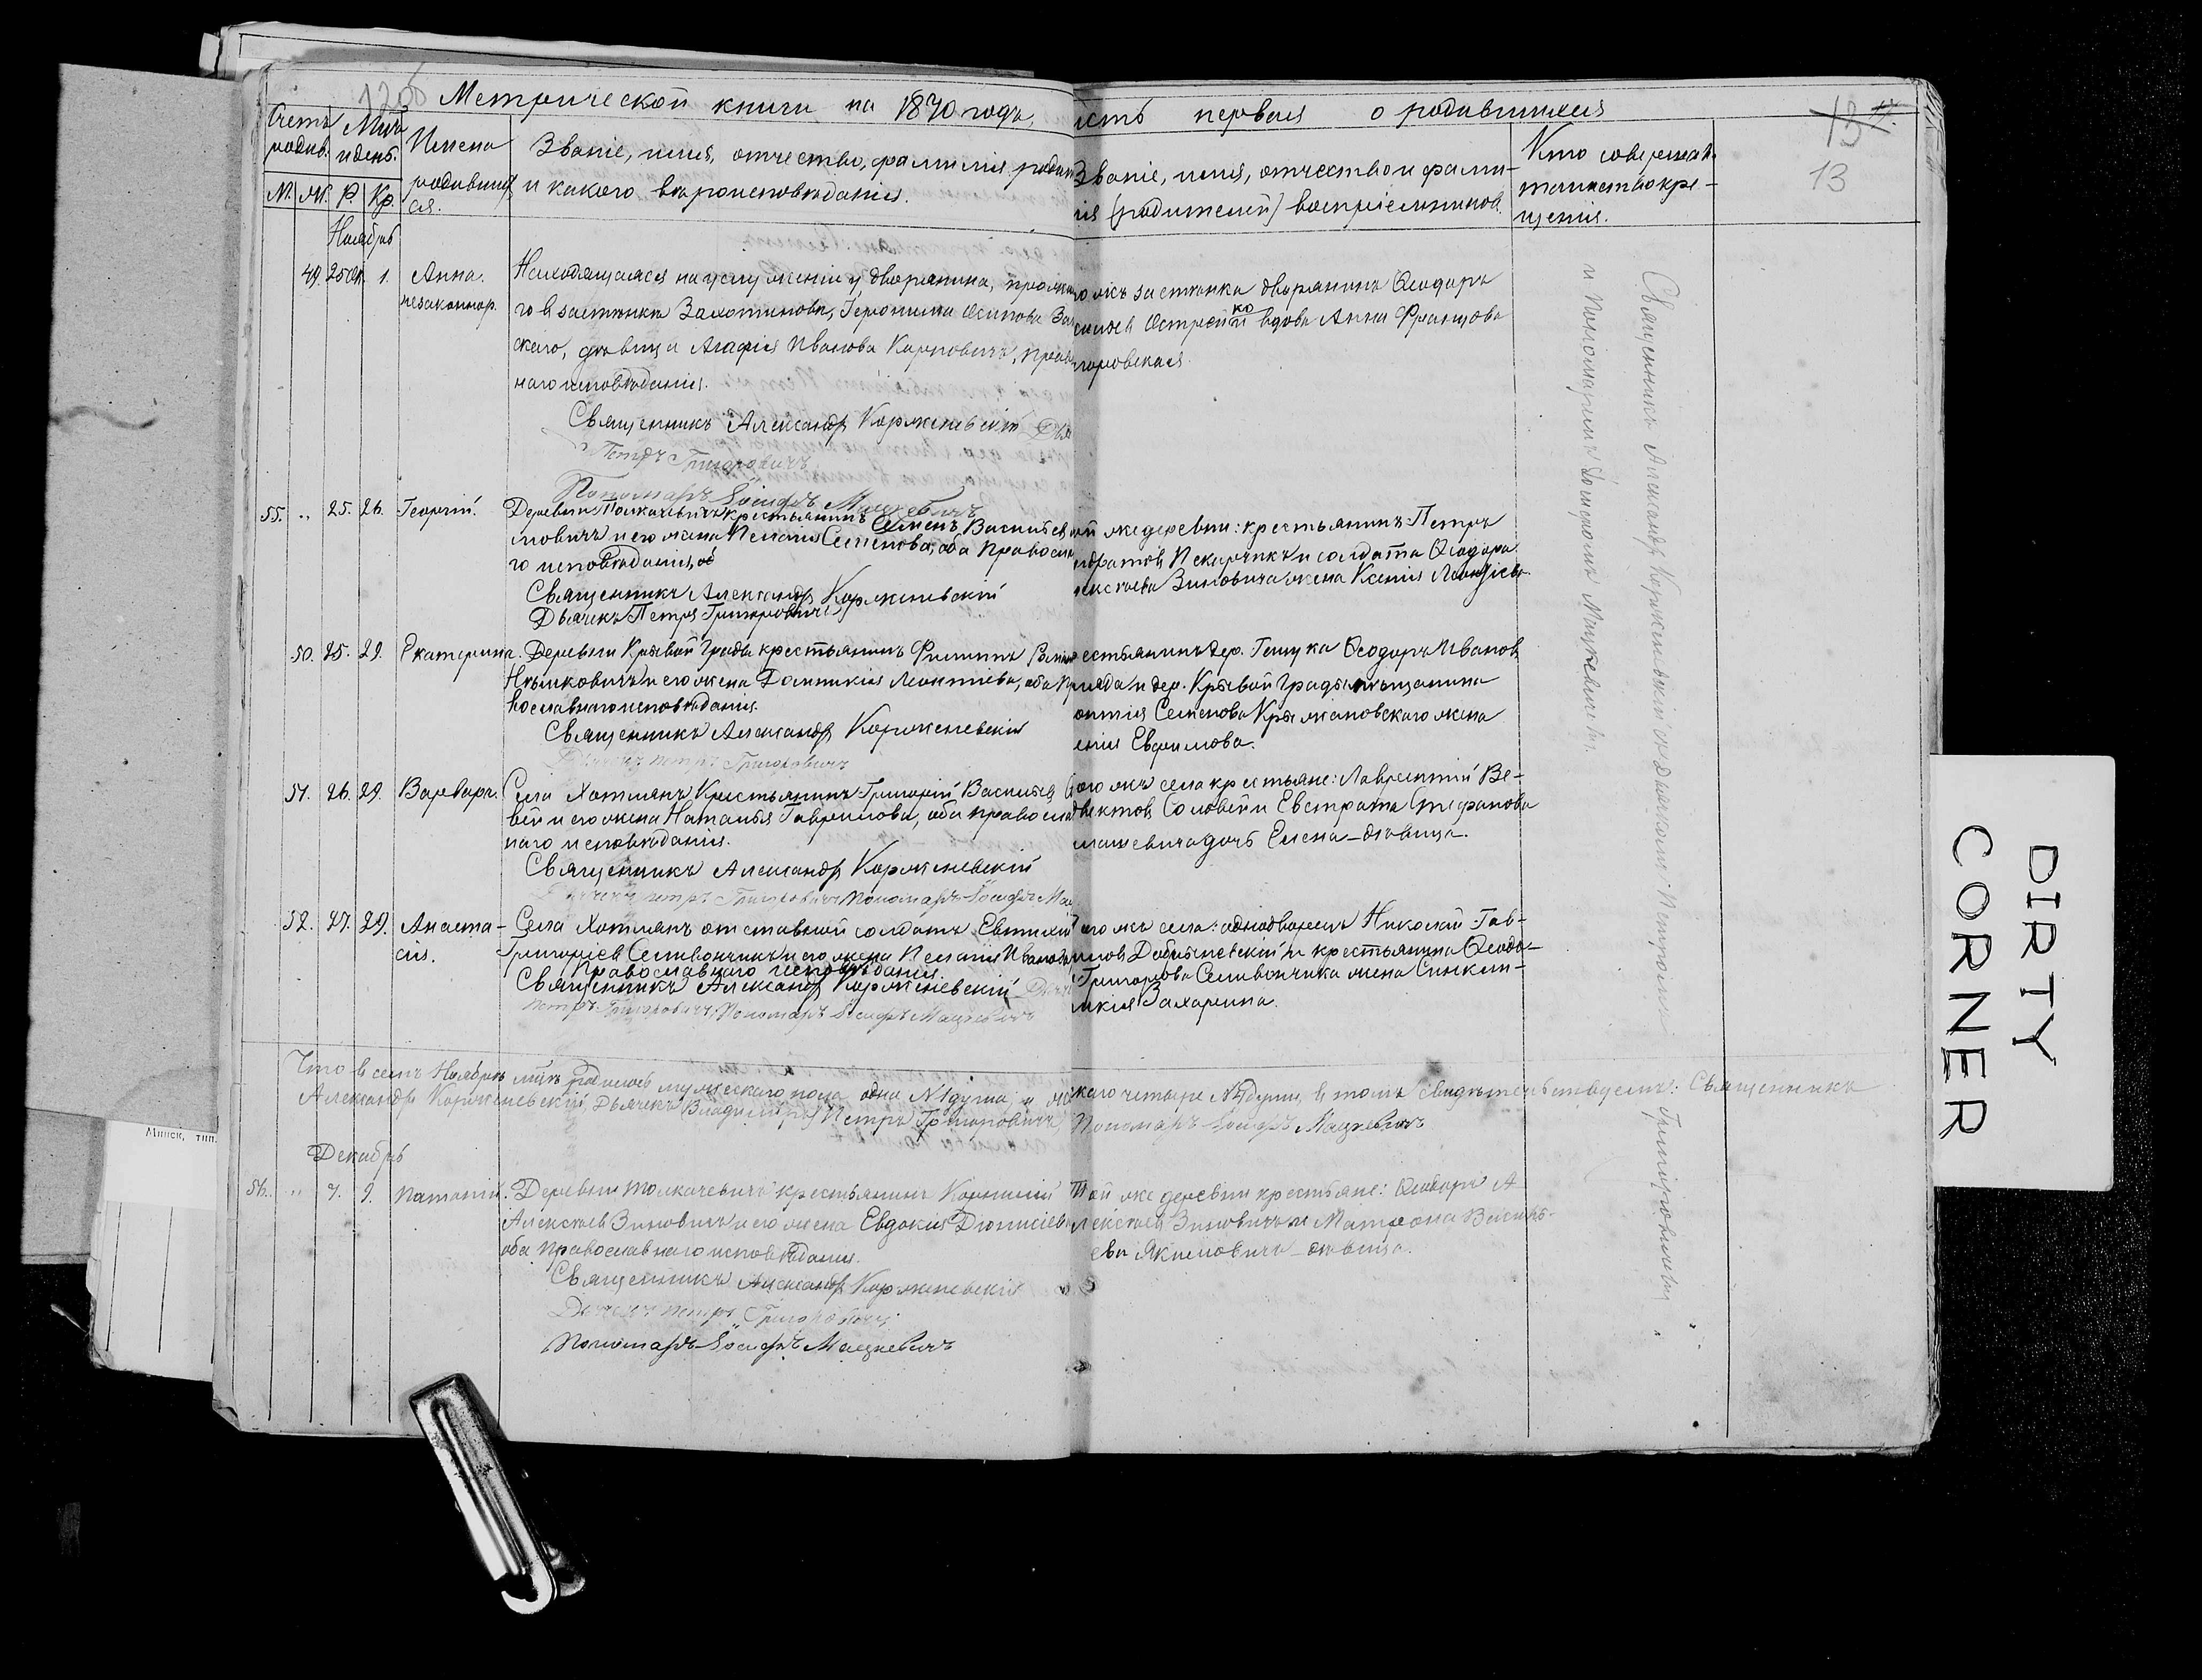 Метрической книги на 1870 годъ,
сть первая о родившихся
13
13
Счетъ родив.
М-цъ и день.
Имена родивших ся.
М. Ж. Р. Кр.
Званіе, имя, отчество, фамилія родит
и какого вѣроисповѣданія.
Званіе, имя, отчество и фами-
ія (родителей) воспріемниковъ.
Кто совершалъ
таинство кре-
щенія.
Ноябрь
49. 25 1. Анна.
незаконнор.
Находящаяся на услуженіи у дворянина,
го в застѣнкѣ Іеронима Осипова За
скаго, дѣвица Агафія Иванова Карповичъ, право
наго исповѣданія.
Священникъ Александръ Корженевскій Дья
Петръ Григоровичъ
Пономаръ Іосифъ Мацкевичъ
жъ застѣнка дворянинъ Ѳеодоръ
Острейко и вдова Анна Францова
55. „ 25. 26. Георгій.
Деревни Толкачевичъ крестьянинъ Семенъ Васильев
мовичъ и его жена Пелагія Семенова, оба православ
го исповѣданія,
Священникъ Александръ Корженевскій
Дьячекъ Петръ Григоровичъ
ой же деревни: крестьянинъ Петръ
Пекарчикъ и солдата Ѳеодора
лексѣева Зиновича жена Ксенія
50. 25. 29. Екатерина.
Деревни Кривой Гряды крестьянинъ Филиппъ
и его жена Домникія Леонтіева, оба Пра
вославнаго исповѣданія.
Священникъ Александръ Корженевскій
Дьячекъ Петръ Григоровичъ
естьянинъ дер. Ѳеодоръ Иванов
и дер. Кривой Гряды мѣщанина
онтія Семенова Крыжановскаго жена
енія Евфимова.
51. 26. 29. Варвара.
Села Хотлянъ Крестьянинъ Григорій Васильев Со
вей и его жена Наталья Гаврилова, оба православ
наго исповѣданія.
Священникъ Александръ Корженевскій
Дьячекъ Петръ Григоровичъ Пономаръ Іосифъ Мац
ого жъ села крестьяне: Лаврентій Ве-
диктов Соловей и Евстрата Стефанова
машевича дочь Елена – дѣвица.
52. 27. 29. Анаста-
сія.
Села Хотлянъ отставной солдатъ Евтихій
Григоріев Селивончикъ и его жена Пелагія Иванова
Православнаго исповѣданія.
Священникъ Александръ Корженевскій Дьяч
Петръ Григоровичъ, Пономаръ Іосифъ Мацкевичъ
ого жъ села: однодворецъ Николай Гав-
илов и крестьянина Ѳеодо-
Григорова Селивончика жена Синкли-
икія Захарина.
Что в семъ Ноябрѣ м-цѣ родилось мужескаго пола одна №1 душа и же
скаго четыре №4 души, в томъ свидѣтельствуемъ: Священникъ
Александръ Корженевскій, Дьячекъ Петръ Григоровичъ,
Пономаръ Іосифъ Мацкевичъ
Декабрь
56. „ 7. 9. Патапій.
Деревни Толкачевичъ крестьянинъ Корнилій
Алексѣев Зиновичъ и его жена Евдокія Діонисіева
оба Православнаго исповѣданія.
Священникъ Александръ Корженевскій
Дьячекъ Петръ Григоровичъ
Пономаръ Іосифъ Мацкевичъ
Той же деревни крестьяне: Ѳеодоръ А
лексѣев Зиновичъ и Матрона Василь-
ева Якимовичъ – дѣвица.
Священникъ Александръ Корженевскій съ дьячкомъ Петромъ Григоровичемъ
и Пономаремъ Іосифомъ Мацкевичемъ.
Минск, тип.
DIRTY
CORNER